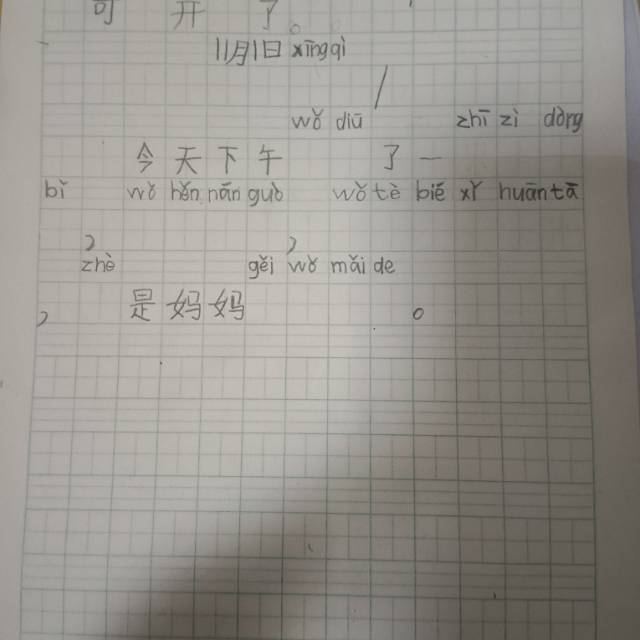 可 开 了。
11月1日 xīngqì
wǒ diū zhī zì dòng
今天下午 了一
bǐ wǒ hěn nán guò wǒ tè bié xǐ huān tā
, ,
zhè gěi wǒ mǎi de
, 是妈妈 。